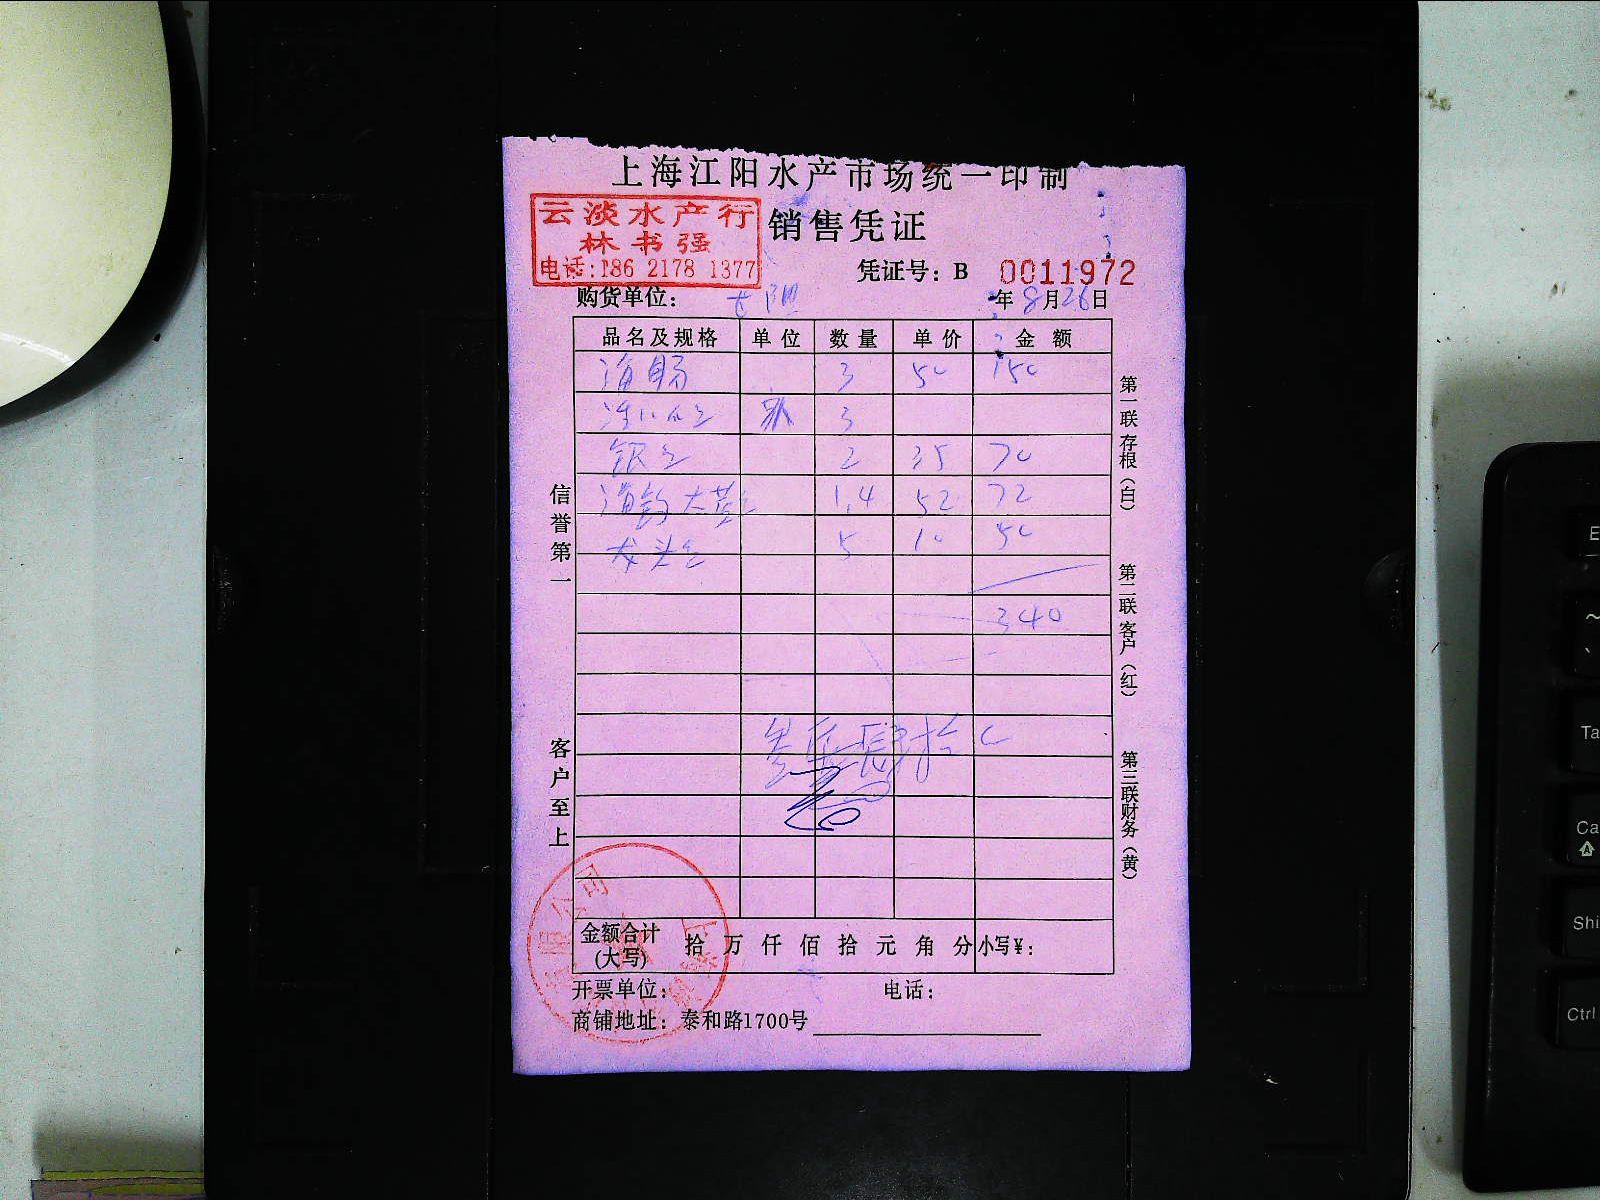 上海江阳水产市场统一印制
云淡水产行
林书强
电话:186 2178 1377
销售凭证
凭证号：B 0011972
购货单位：
年 8月26日
品名及规格 单位 数量 单价 金额
海肠 3 50 150
3
银 2 35 70
海钓大黄 1.4 52 72
龙头 5 10 50
340
叁佰肆拾
金额合计(大写) 拾 万 仟 佰 拾 元 角 分 小写¥：
开票单位： 电话：
商铺地址：泰和路1700号
信誉第一
客户至上
第一联存根(白)
第二联客户(红)
第三联财务(黄)
Ctrl